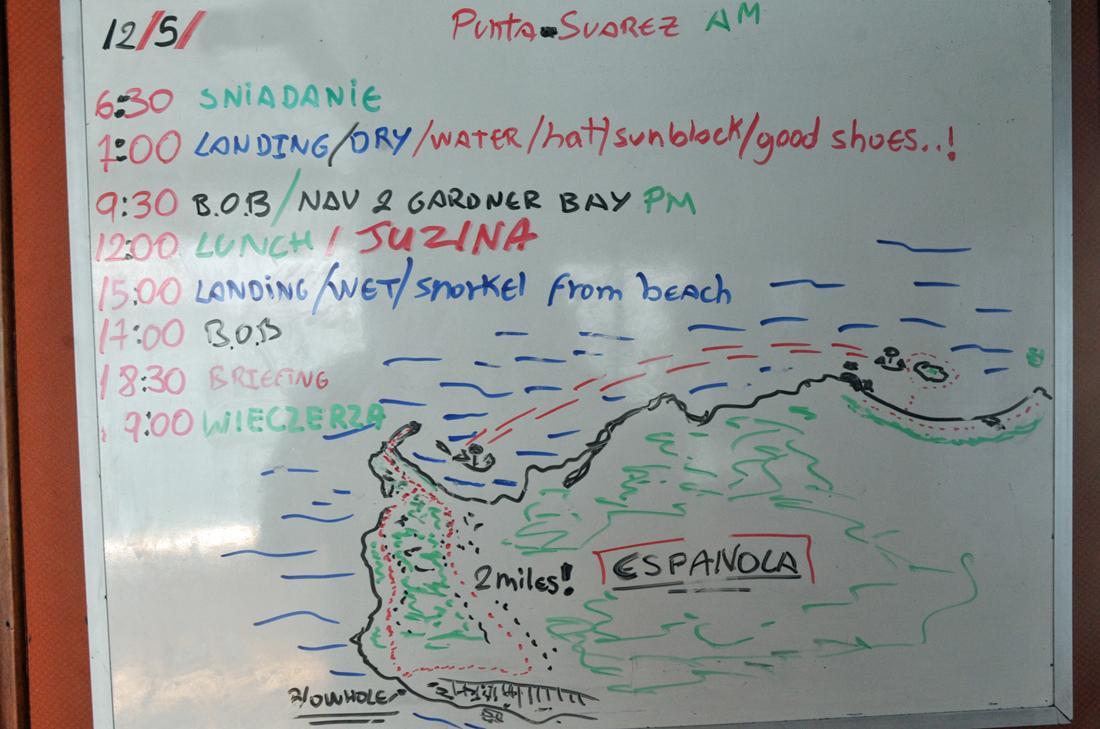 12/5/
Punta-Suarez AM
6:30 SNIADANIE
7:00 LANDING/DRY/WATER/hat/sunblock/good shoes..!
9:30 B.O.B/NAV 2 GARDNER BAY PM
12:00 LUNCH / JUZINA
15:00 LANDING/WET/snorkel from beach
17:00 B.O.B
18:30 BRIEFING
19:00 WIECZERZA
2miles!
ESPANOLA
BLOWHOLE